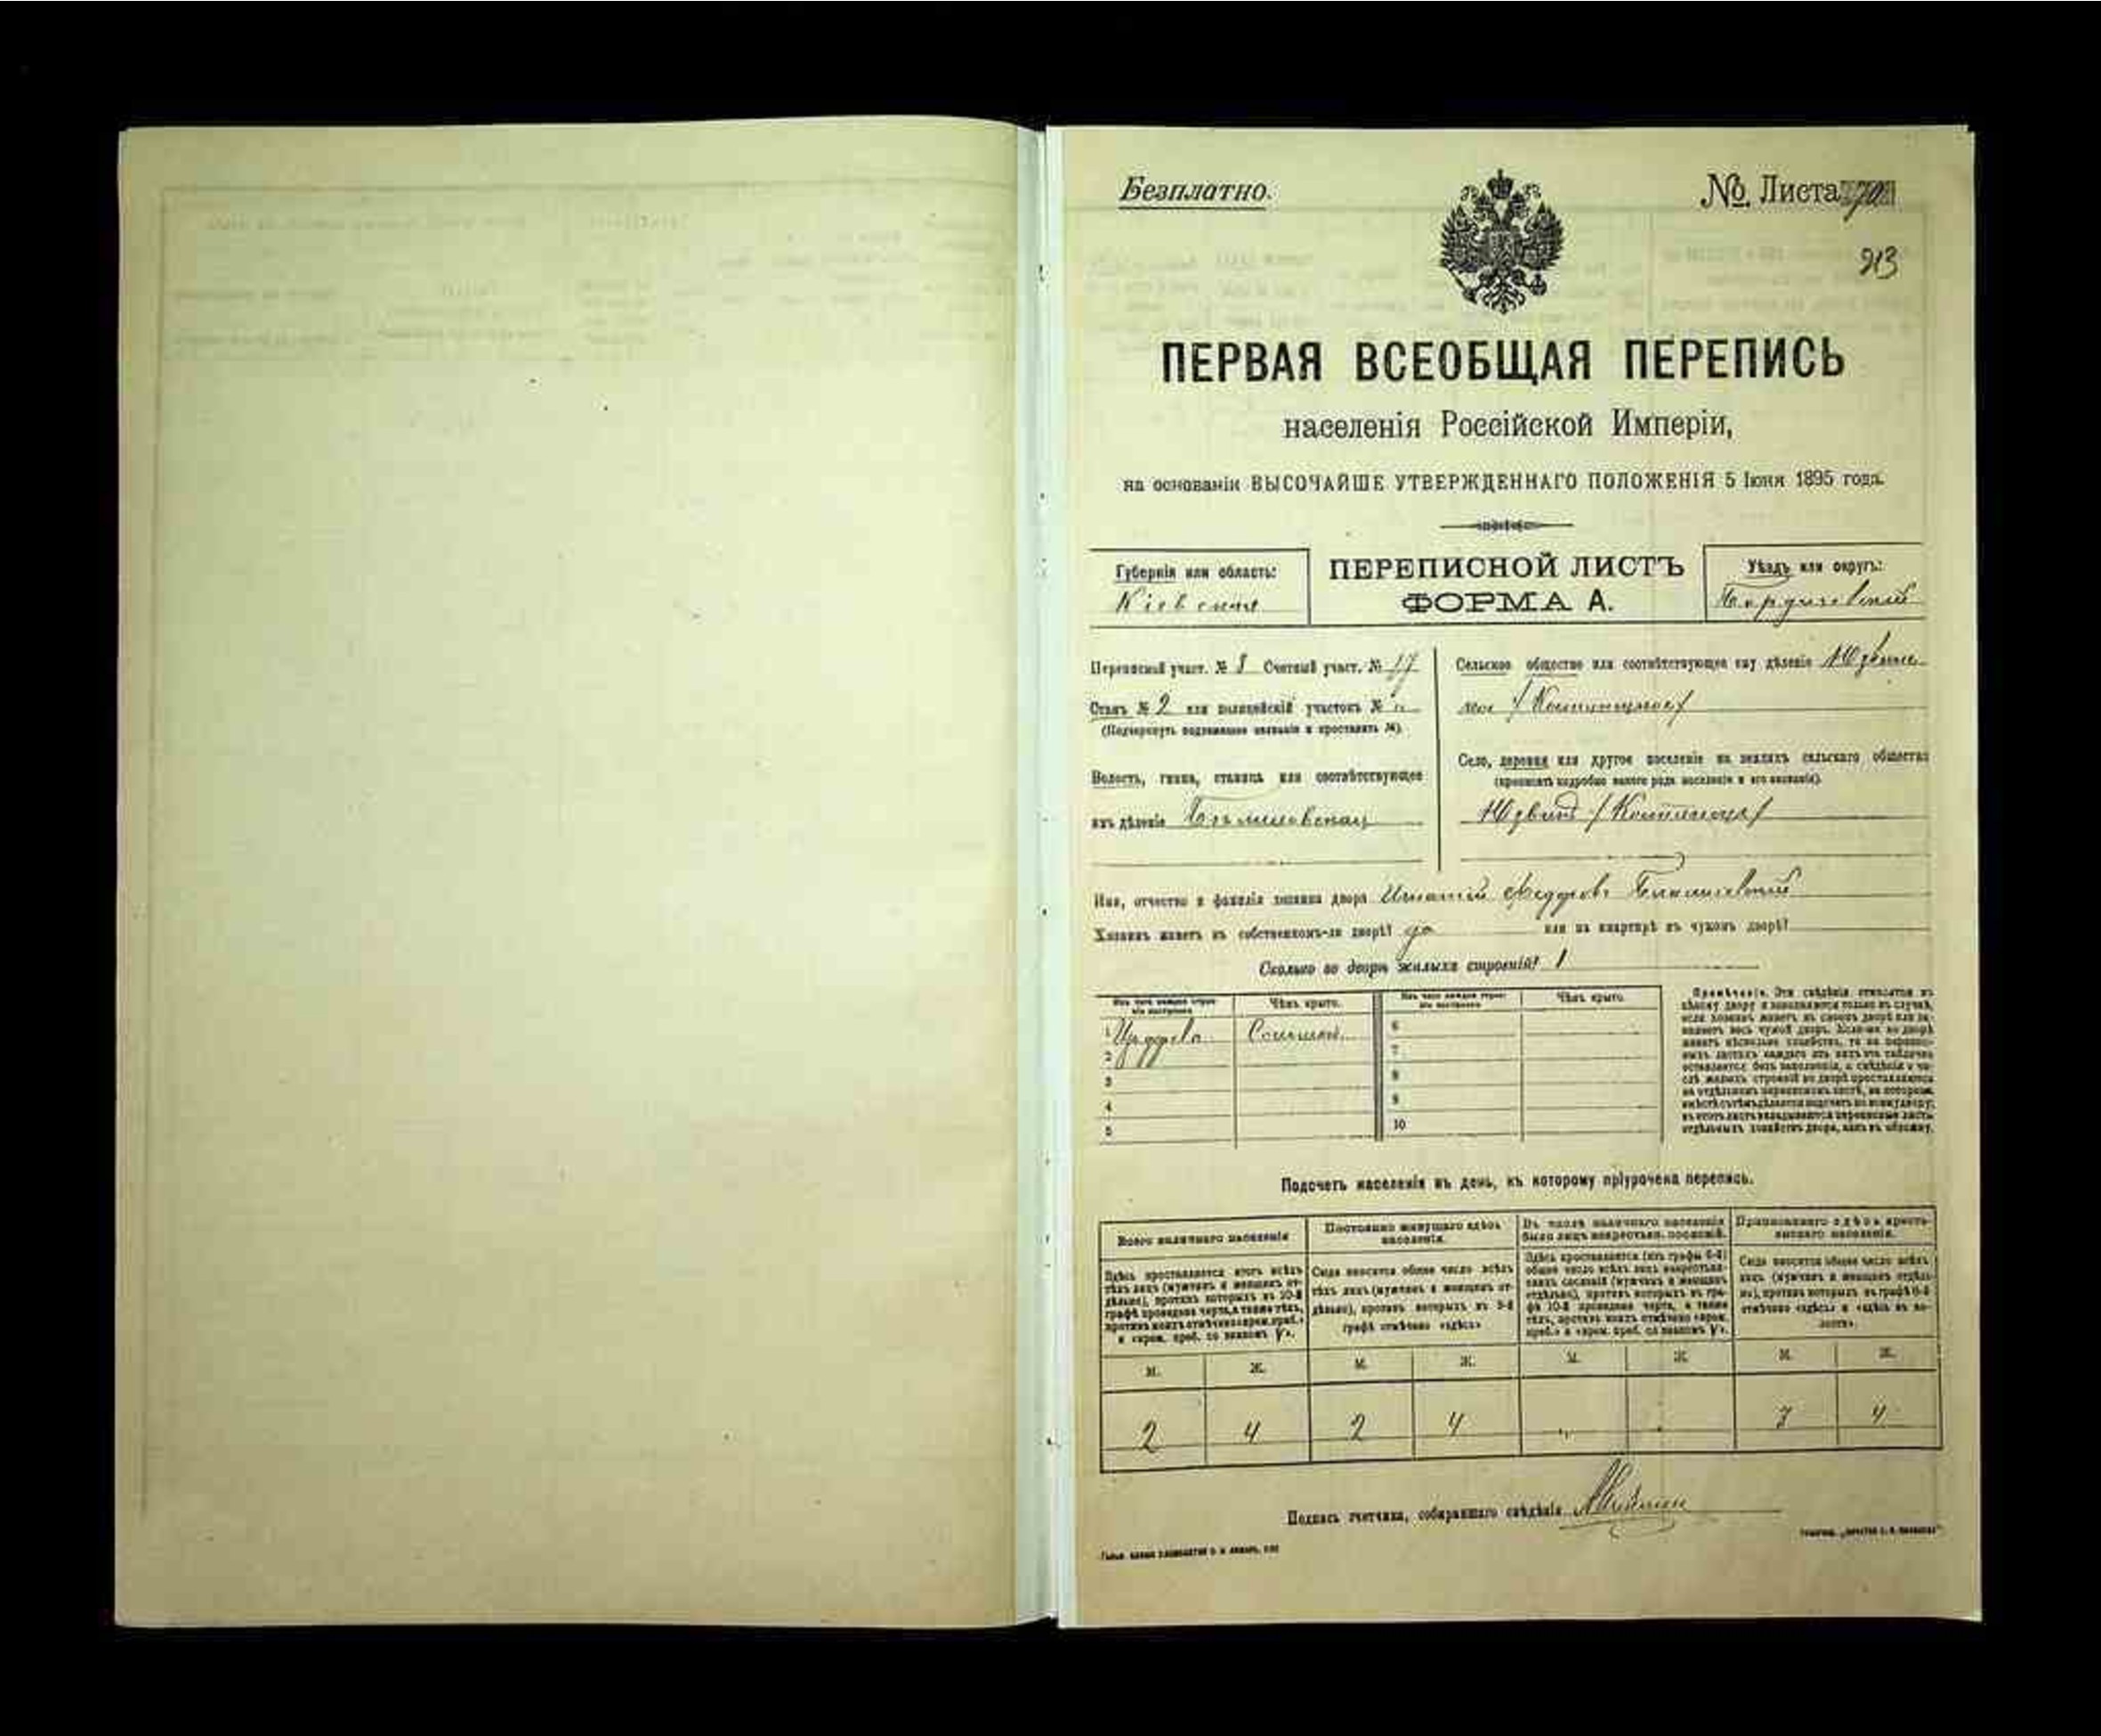 Безплатно.
№ Листа
213
ПЕРВАЯ ВСЕОБЩАЯ ПЕРЕПИСЬ
населенія Россійской Имперіи,
на основаніи ВЫСОЧАЙШЕ УТВЕРЖДЕННАГО ПОЛОЖЕНІЯ 5 Іюня 1895 года.
Губернія или область:
Кіевская
ПЕРЕПИСНОЙ ЛИСТЪ
ФОРМА А.
Уѣздъ или округъ:
Бердичевскій
Переписной участ. № 8 Счетный участ. № 17
Станъ № 2 или полицейскій участокъ №
(Подчеркнуть подлежащее названіе и проставить №).
Волость, гмина, станица или соотвѣтствующее
имъ дѣленіе
Сельское общество или соотвѣтствующее ему дѣленіе
Село, деревня или другое поселеніе на земляхъ сельскаго общества
(прописать подробно какого рода поселеніе и его названіе).
Имя, отчество и фамилія хозяина двора Игнатій Федоровъ
Хозяинъ живетъ въ собственномъ-ли дворѣ? да или на квартирѣ въ чужомъ дворѣ?
Сколько во дворѣ жилыхъ строеній? 1
Изъ чего каждое строе-
ніе построено
Чѣмъ крыто.
Изъ чего каждое строе-
ніе построено
Чѣмъ крыто.
1 Соломой
2
3
4
5
6
7
8
9
10
Примѣчаніе. Эти свѣдѣнія относятся къ
цѣлому двору и заполняются только въ случаѣ,
если хозяинъ живетъ въ своемъ дворѣ или за-
нимаетъ весь чужой дворъ. Если-же во дворѣ
живетъ нѣсколько хозяйствъ, то на перепис-
ныхъ листахъ каждаго изъ нихъ эта табличка
оставляется безъ заполненія, а свѣдѣнія о чи-
слѣ жилыхъ строеній во дворѣ проставляются
на отдѣльномъ переписномъ листѣ, на которомъ
вмѣстѣ съ тѣмъ дѣлается подсчетъ по всему двору;
въ этотъ листъ вкладываются переписные листы
отдѣльныхъ хозяйствъ двора, какъ въ обложку.
Подсчетъ населенія въ день, къ которому пріурочена перепись.
Всего наличнаго населенія
Постоянно живущаго здѣсь
населенія.
Въ числѣ наличнаго населенія
было лицъ некрестьян. сословій.
Приписаннаго здѣсь кресть-
янскаго населенія.
Здѣсь проставляется итогъ всѣхъ
тѣхъ лицъ (мужчинъ и женщинъ от-
дѣльно), противъ которыхъ въ 10-й
графѣ проведена черта, а также тѣхъ,
противъ коихъ отмѣчено «врем. преб.»
и «врем. преб. со знакомъ V».
Сюда вносится общее число всѣхъ
тѣхъ лицъ (мужчинъ и женщинъ от-
дѣльно), противъ которыхъ въ 9-й
графѣ отмѣчено «здѣсь»
Здѣсь проставляется (изъ графы 6-й)
общее число всѣхъ лицъ некрестьян-
скихъ сословій (мужчинъ и женщинъ
отдѣльно), противъ которыхъ въ гра-
фѣ 10-й проведена черта, а также
тѣхъ, противъ коихъ отмѣчено «врем.
преб.» и «врем. преб. со знакомъ V».
Сюда вносится общее число всѣхъ
лицъ (мужчинъ и женщинъ отдѣль-
но), противъ которыхъ въ графѣ 8-й
отмѣчено «здѣсь» и «здѣсь въ во-
лости».
М. Ж. М. Ж. М. Ж. М. Ж.
2 4 2 4 3 4
Подпись счетчика, собиравшаго свѣдѣнія